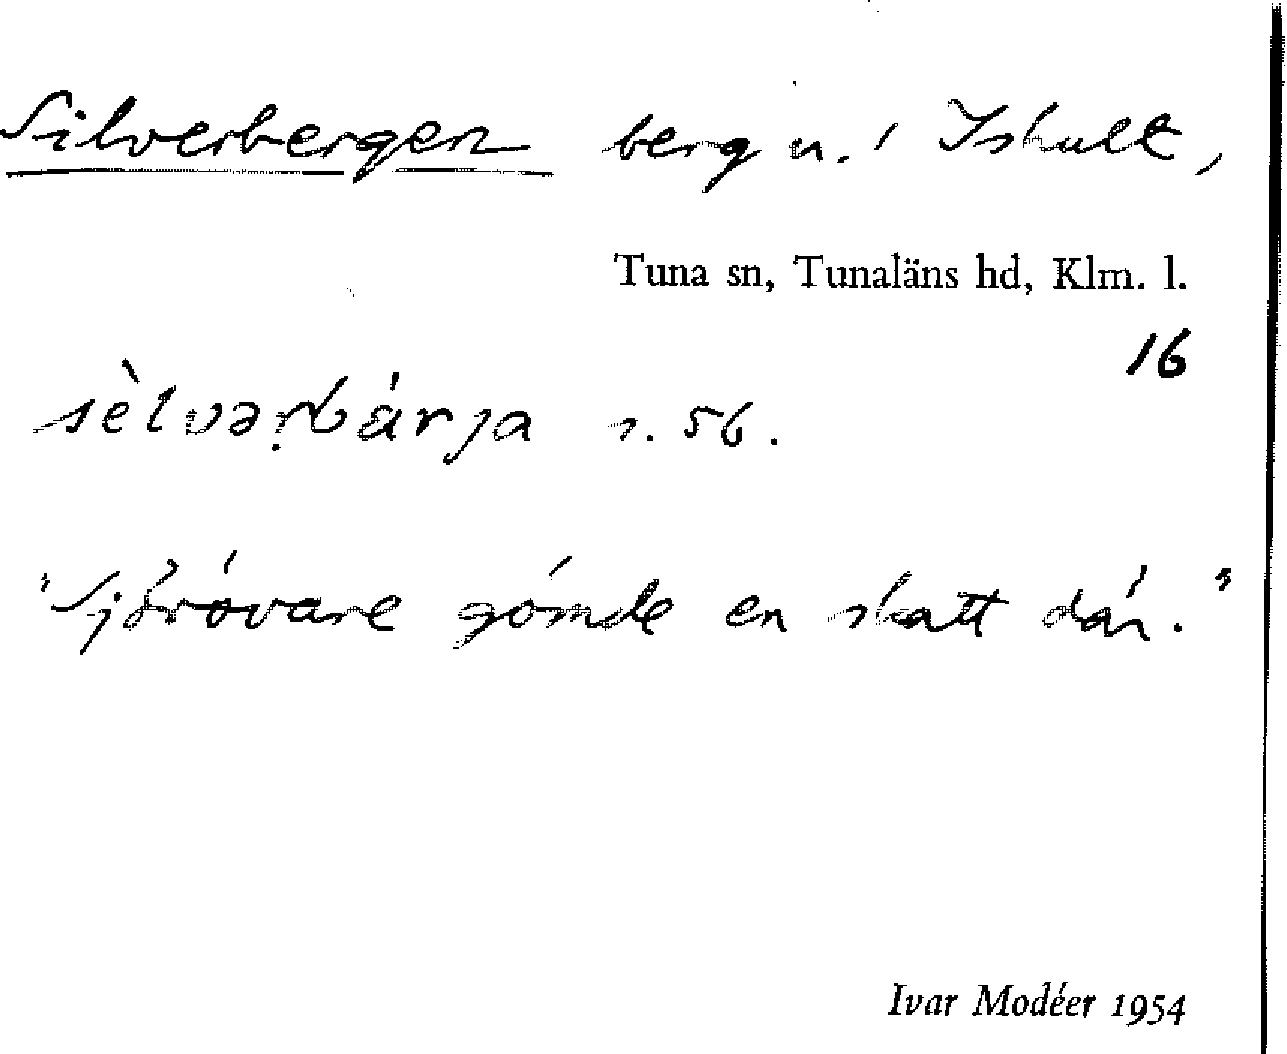 Silverbergen berg n. i Ishult,
Tuna sn, Tunaläns hd, Klm. l.
16
sèlvərbárja s. 56.
"Sjörövare gömde en skatt där."
Ivar Modéer 1954